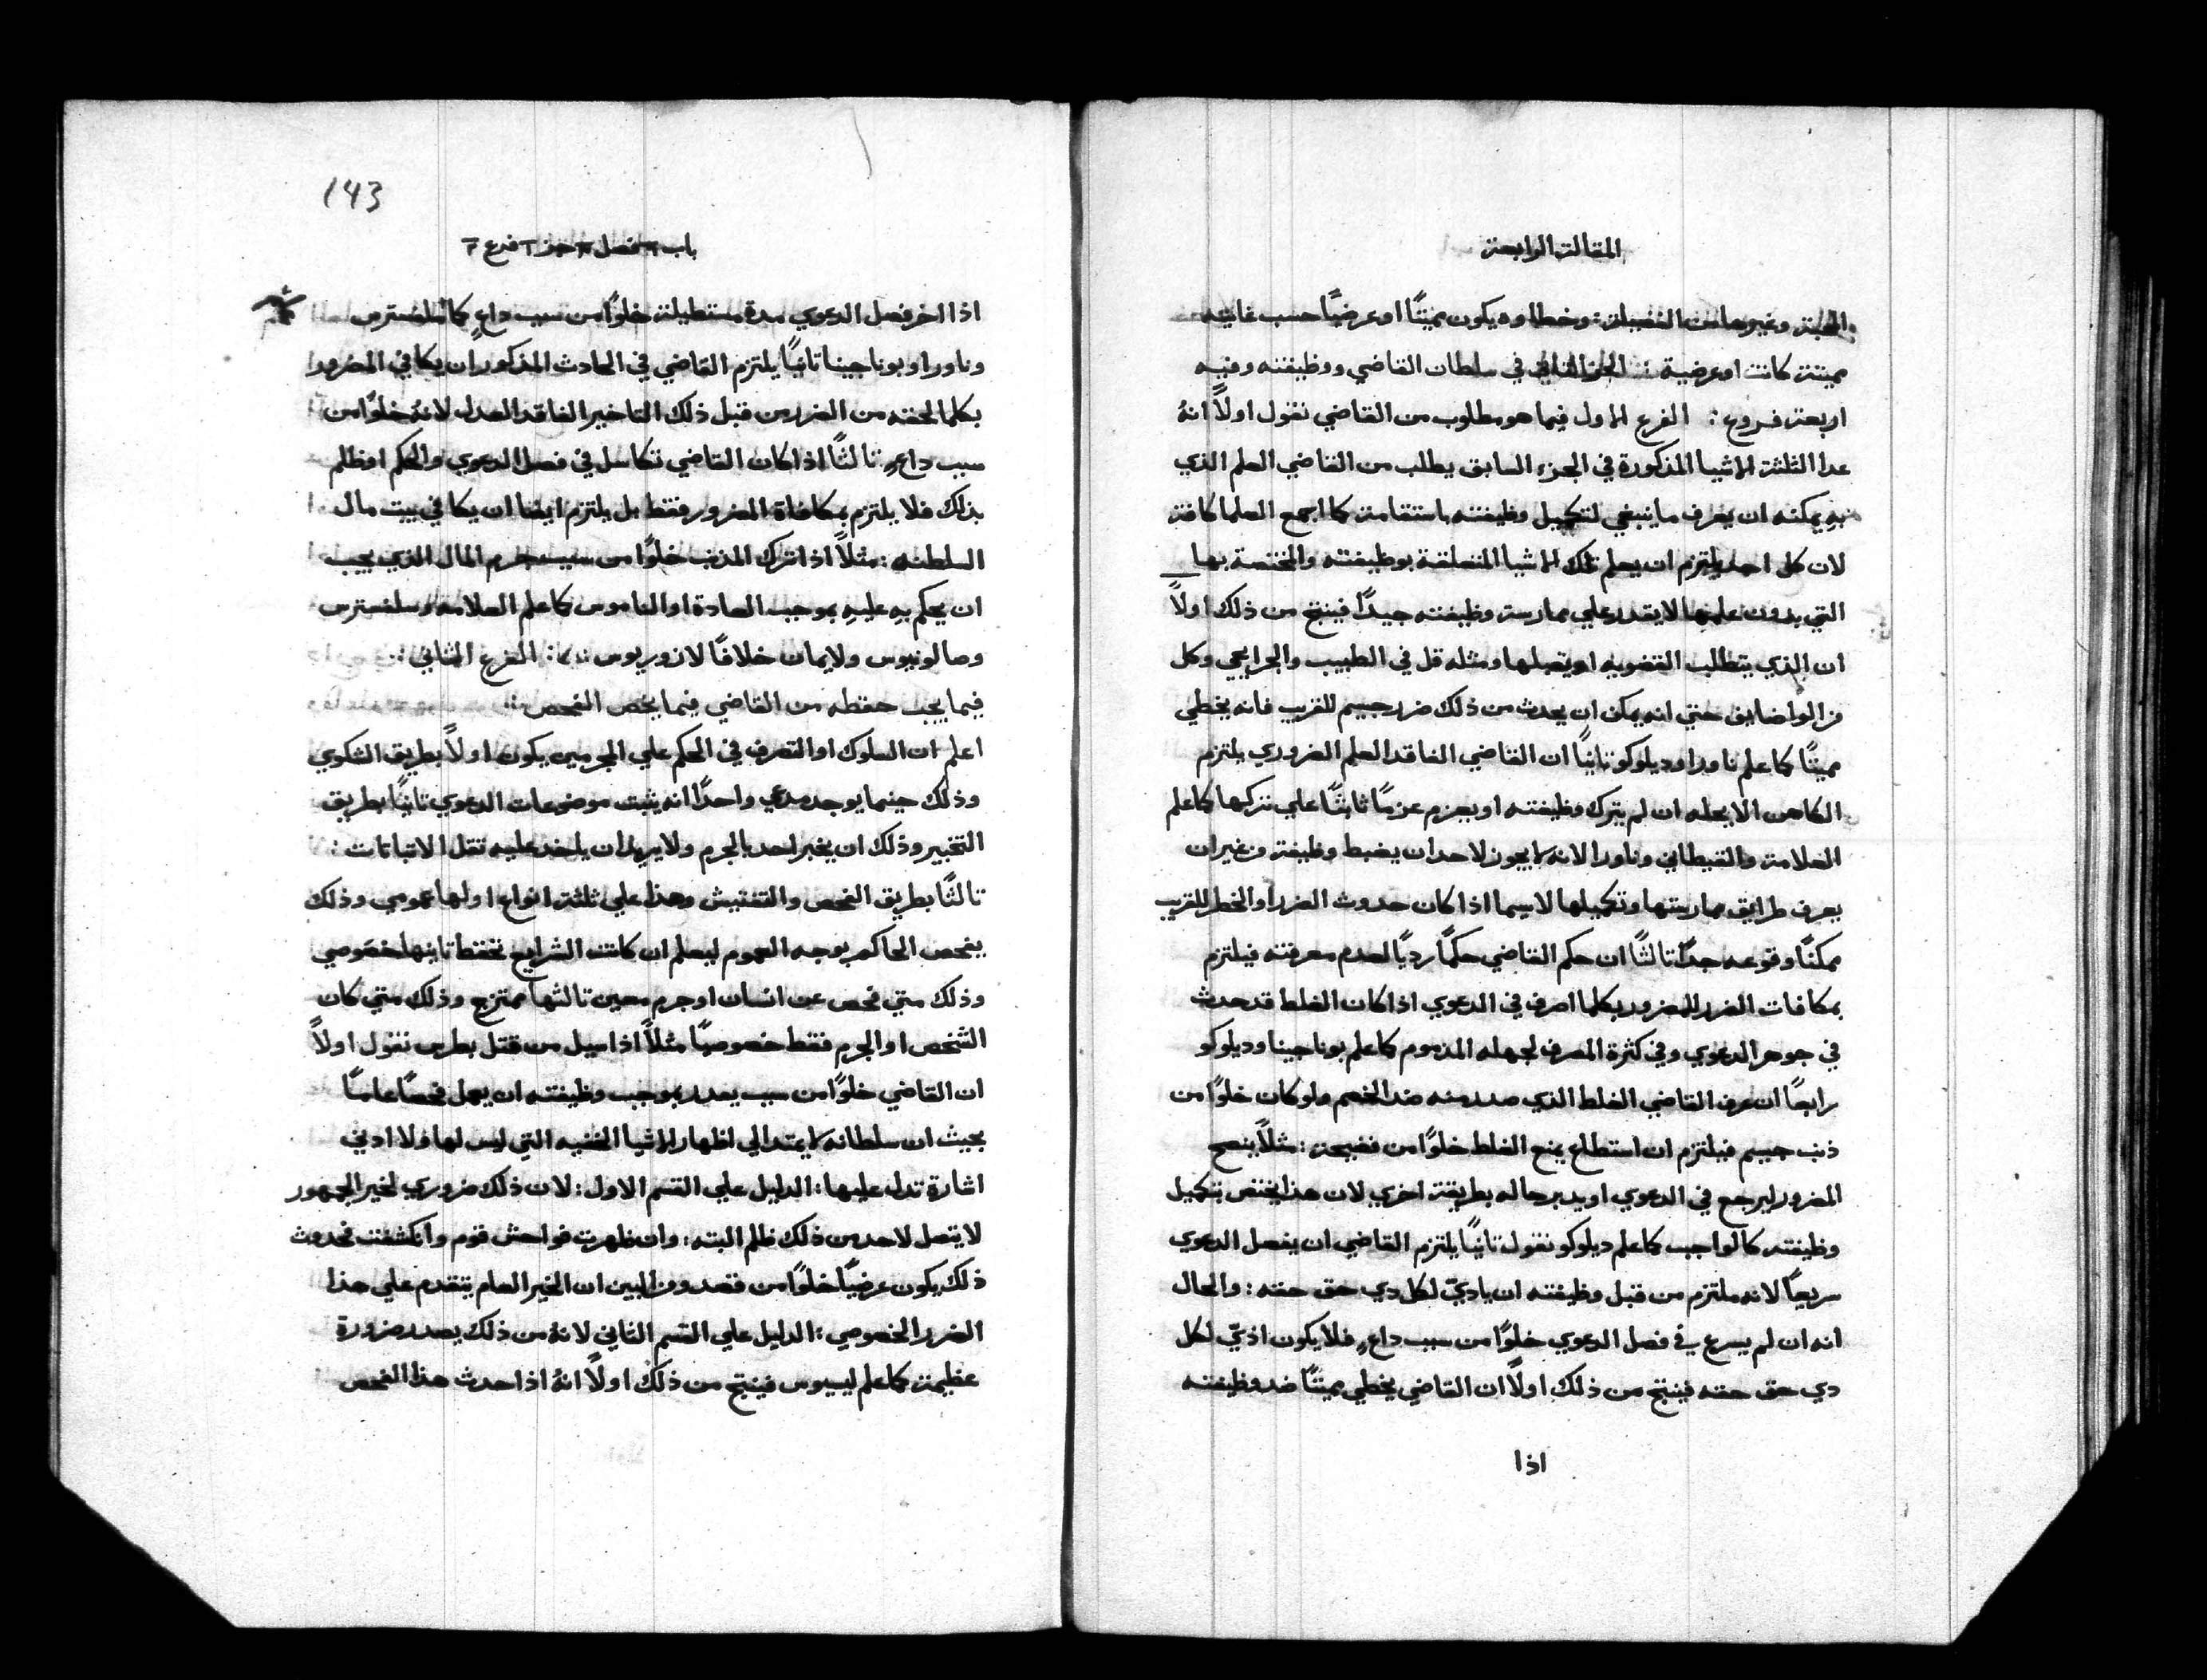 المقالة الرابعة
المحبة وغيرها من الفضيلة: وخطاوه يكون مميتًا او عرضيًا حسب غايته
مميتة كانت او عرضية: الجزء الثاني في سلطان القاضي ووظيفته وفيه
اربعة فروع: الفرع الاول فيما هو مطلوب من القاضي نقول اولاً انهُ
عدا الثلثة الاشيا المذكورة في الجزء السابق يطلب من القاضي العلم الذي
بهِ يمكنه ان يعرف ما ينبغي لتكميل وظيفته باستقامة كما اجمع العلما كافة
لان كل احد يلتزم ان يعلم تلك الاشيا المتعلقة بوظيفته والمختصة بها
التي بدون علمها لا يقدر علي ممارسة وظيفته جيدًا فينتج من ذلك اولاً
ان الذي يتطلب القضويه او يقبلها ومثله قل في الطبيب والجرايحي وكل
من الواضايق حتي انه يمكن ان يحدث من ذلك ضرر جسيم للقريب فانه يخطي
مميتًا كما علم ناورا وديلوكو ثانيًا ان القاضي الفاقد العلم الضروري يلتزم
الكاهن الا يحله ان لم يترك وظيفته او يجزم عزمًا ثابتًا علي تركها كما علم
العلامة والقيطاني وناورا لانه لا يجوز لاحد ان يضبط وظيفة من غير ان
يعرف طرايق ممارستها وتكميلها لاسيما اذا كان حدوث الضرر او الخطر للقريب
ممكنًا وقوعه جدًا ثالثًا ان حكم القاضي حكمًا رديًا لعدم معرفته فيلتزم
بمكافات الضرر للمضرور بكلما اصرف في الدعوي اذا كان الغلط قد حدث
في جوهر الدعوي وفي كثرة المصرف لجهله المذموم كما علم بوناجينا وديلوكو
رابعًا ان عرف القاضي الغلط الذي صدر منه ضد الخصم ولو كان خلوًا من
ذنب جسيم فيلتزم ان استطاع يمنع الغلط خلوًا من فضيحة: مثلاً ينصح
المضرور ليرجع في الدعوي او يدبر حاله بطريقة اخري لان هذا يختص بتكميل
وظيفته كالواجب كما علم ديلوكو نقول ثانيًا يلتزم القاضي ان يفصل الدعوي
سريعًا لانه ملتزم من قبل وظيفته ان ياديّ لكل دي حق حقه: والحال
انه ان لم يسرع في فصل الدعوي خلوًا من سبب داعٍ فلا يكون اديّ لكل
دي حق حقه فينتج من ذلك اولاً ان القاضي يخطي مميتًا ضد وظيفته
اذا
143
باب فصل جز فرع
اذا اخر فصل الدعوي مدة مستطيلة خلوًا من سبب داعٍ كما سلفسترس
وناورا وبوناجينا ثانيًا يلتزم القاضي في الحادث المذكور ان يكافي المضرور
بكلما لحقه من الضرر من قبل ذلك التاخير الفاقد العدل لانهُ خلوًا من
سبب داعٍ ثالثًا اذا كان القاضي تكاسل في فصل الدعوي والحكم اوظلم
بذلك فلا يلتزم بمكافاة المضرور فقط بل يلتزم ايضا ان يكافي بيت مال
السلطنه: مثلاً اذا ترك المذنب خلوًا من سبب جرم المال الذي يجب
ان يحكم بهِ عليهِ بموجب العادة او الناموس كما علم العلامة وسلفسترس
وصالونيوس ولايمان خلافًا لازوريوس: الفرع الثاني:
فيما يجب حفظه من القاضي فيما يخص الفحص:
اعلم ان السلوك او التصرف في الحكم علي المجرمين يكون اولاً بطريق الشكوي
وذلك حينما يوجد مدعي واحدًا انه يثبت موضوعات الدعوي ثانيًا بطريق
التخبير وذلك ان يخبر احد بالجرم ولا يريد ان ياخذ عليه ثقل الاثباتات:
ثالثًا بطريق الفحص والتفتيش وهذا علي ثلثة انواع اولها عمومي وذلك
يفحص الحاكم بوجه العموم ليعلم ان كانت الشرايع تحفظ ثانيها خصوصي
وذلك متي فحص عن انسان او جرم معين ثالثها ممتزج وذلك متي كان
الشخص او الجرم فقط خصوصيًا مثلاً اذا سيل من قتل بطرس نقول اولاً
ان القاضي خلوًا من سبب يقدر بموجب وظيفته ان يعمل فحصًا عامًا
بحيث ان سلطانه لا يمتد الي اظهار الاشيا الخفيه التي ليس لها ولا ادني
اشارة تدل عليها: الدليل علي القسم الاول: لان ذلك ضروري لخير الجمهور
لا يتصل لاحد من ذلك ظلم البته: وان ظهرت فواحش قوم وانكشفت فحدوث
ذلك يكون عرضيًا خلوًا من قصد ومن البين ان الخير العام يتقدم علي هذا
الضرر الخصوصي: الدليل علي القسم الثاني لانهُ من ذلك يصدر ضرورة
عظيمة كما علم ليسيوس فينتج من ذلك اولاً انهُ اذا حدث هذا الفحص